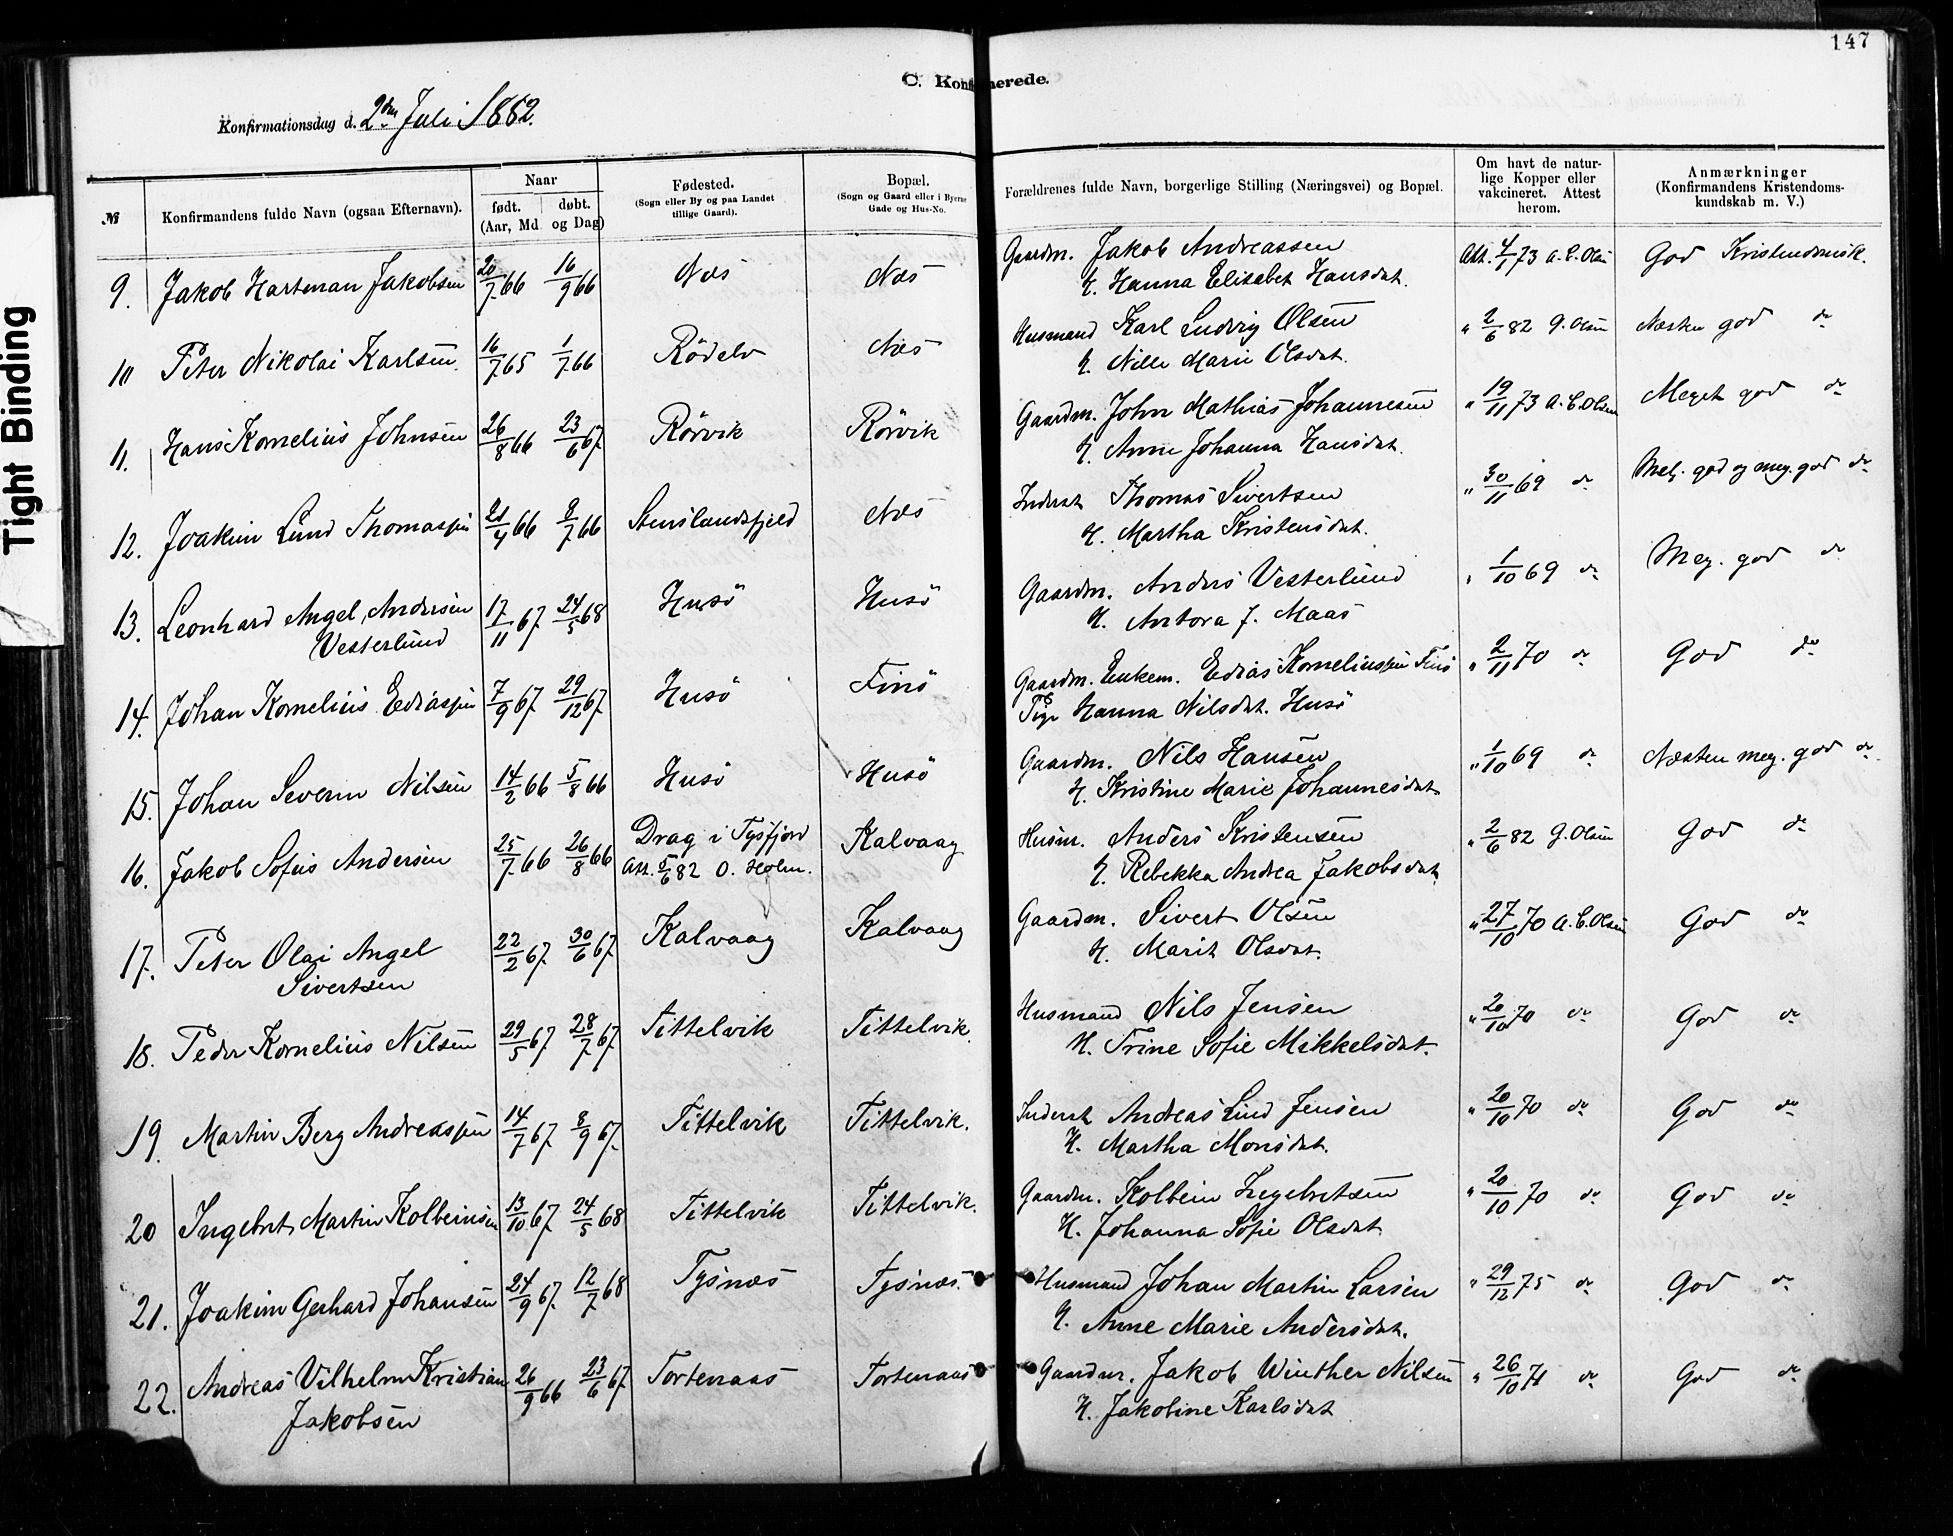 147
C. Konfirmerede.
Konfirmationsdag d. 2den Juli 1882.
Tight Binding
№ | Konfirmandens fulde Navn (ogsaa Efternavn). | Naar født. (Aar, Md. | døbt. og Dag) | Fødested. (Sogn eller By og paa Landet tillige Gaard). | Bopæl. (Sogn og Gaard eller i Byerne Gade og Hus-No. | Forældrenes fulde Navn, borgerlige Stilling (Næringsvei) og Bopæl. | Om havt de naturlige Kopper eller vakcineret. Attest herom. | Anmærkninger (Konfirmandens Kristendomskundskab m. V.)
9. Jakob Hartman Jakobsen 20/7 66 16/9 66 Næs Næs Gaardm. Jakob Andreassen Att. 4/1 73 A. C. Olsen God Kristendomsk.
H. Hanna Elisabet Hansdat.
10 Peter Nikolai Karlsen. 16/7 65 1/7 66 Rödelv Næs Husmand Karl Ludvig Olsen " 2/6 82 G. Olsen Næsten god do
H. Nille Marie Olsdat.
11. Hans Kornelius Johnsen 26/8 66 23/6 67. Rörvik Rörvik Gaardm. John Mathias Johannesen " 19/11 73 A. C. Olsen Meget god do
H. Anne Johanna Hansdat.
12. Joakim Lund Thomassen 21/4 66 8/7 66 Stenslandsfjeld Næs Inderst Thomas Sivertsen " 30/11 69 do god og meg. god do
H. Martha Kristensdat.
13. Leonhard Angel Andersen 17/11 67. 24/5 68 Husö Husö Gaardm. Anders Vesterlund " 1/10 69 do Meg. god do
Vesterlund H. Antora J. Maas
14. Johan Kornelius Ediassen 7/9 67 29/12 67. Husö Finö Gaardm. Enkem. Edias Korneliussen Finö " 2/11 70 do God do
Pige Hanna Nilsdat. Husö
15. Johan Severin Nilsen 14/2 66 5/8 66 Husö Husö Gaardm. Nils Hansen " 1/10 69 do Næsten meg. god do
H. Kristine Marie Johannesdat.
16. Jakob Sofus Andersen 25/7 66 26/8 66 Drag i Tysfjord Kalvaag Husm. Anders Kristensen " 2/6 82 G. Olsen God do
Att. 5/6 82 O. Holm. H. Rebekka Andrea Jakobsdat.
17. Peter Olai Angel 22/2 67. 30/6 67. Kalvaag Kalvaag Gaardm. Sivert Olsen " 27/10 70 A. C. Olsen God do
Sivertsen H. Marit Olsdat.
18. Peder Kornelius Nilsen 29/5 67 28/7 67. Tittelvik Tittelvik. Husmand Nils Jensen " 20/10 70 do God do
H. Trine Sofie Mikkelsdat.
19. Martin Berg Andreassen 14/7 67. 8/9 67. Tittelvik Tittelvik. Inderst Andreas Lind Jensen " 20/10 70 do God do
H. Martha Monsdat.
20 Ingebret Martin Kolbeinsen 13/10 67. 24/5 68 Tittelvik Tittelvik. Gaardm. Kolbein Ingebretsen " 20/10 70 do God do
H. Johanna Sofie Olsdat.
21. Joakim Gerhard Johansen 24/9 67. 12/7 68 Tysnæs Tysnæs. Husmand Johan Martin Larsen " 29/12 75 do God do
H. Anne Marie Andersdat.
22. Andreas Vilhelm Kristian 26/9 66 23/6 67. Tortenaas Tortenaas Gaardm. Jakob Winther Nilsen " 26/10 71 do God do
Jakobsen H. Jakobine Karlsdat